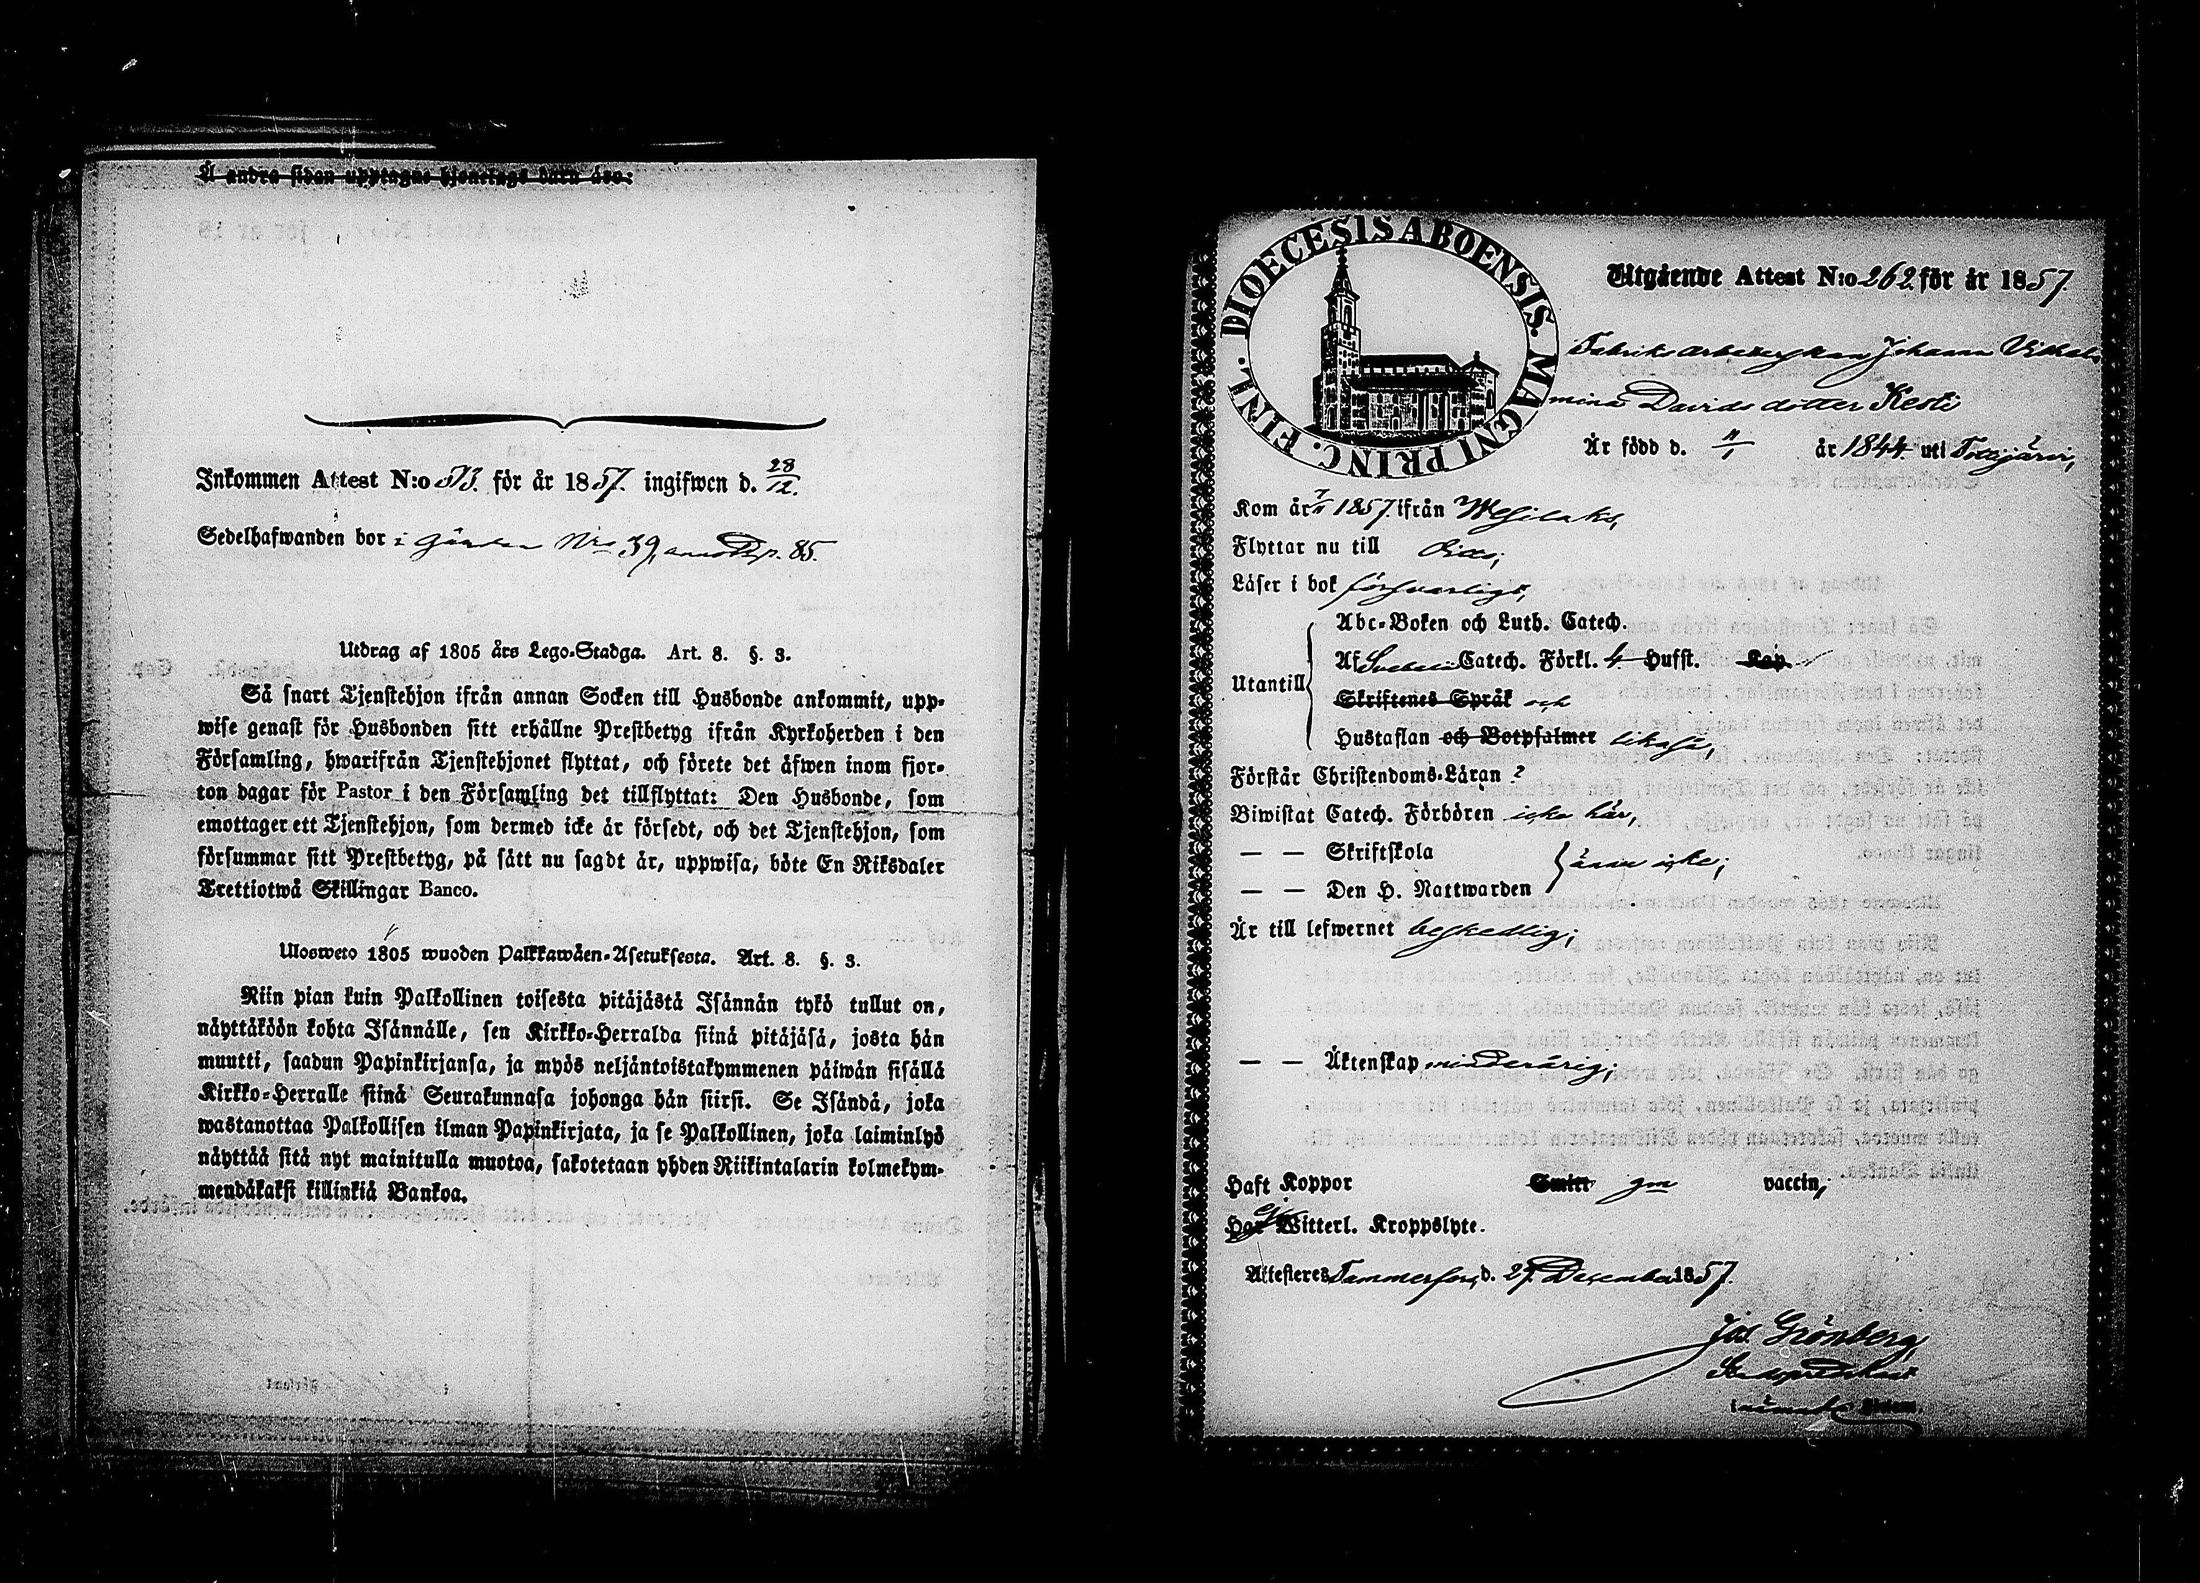 Å andra sidan upptagne tjenstags barn äro:
Inkommen Attest N:o 513. för år 1857. ingifwen d. 28/12.
Sedelhafwanden bor i gården Nro 39, 85.
Utdrag af 1805 års Lego-Stadga. Art. 8. §. 3.
Så snart Tjenstehjon ifrån annan Socken till Husbonde ankommit, upp-
wise genast för Husbonden sitt erhållne Prestbetyg ifrån Kyrkoherden i den
Församling, hwarifrån Tjenstehjonet flyttat, och förete det äfwen inom fjor-
ton dagar för Pastor i den Församling det tillflyttat: Den Husbonde, som
emottager ett Tjenstehjon, som dermed icke är försedt, och det Tjenstehjon, som
försummar sitt Prestbetyg, på sätt nu sagdt är, uppwisa, böte En Riksdaler
Trettiotwå Skillingar Banco.
Uloswето 1805 wuoden Palkkawäen-Asetuksesta. Art. 8. §. 3.
Niin pian kuin Palkollinen toisesta pitäjästä Isännän tykö tullut on,
näyttäköön kohta Isännälle, sen Kirkko-Herralda siinä pitäjäsä, josta hän
muutti, saadun Papinkirjansa, ja myös neljäntoistakymmenen päiwän sisällä
Kirkko-Herralle siinä Seurakunnasa johonga hän siirsi. Se Isändä, joka
wastanottaa Palkollisen ilman Papinkirjata, ja se Palkollinen, joka laiminlyö
näyttää sitä nyt mainitulla muotoa, sakotetaan yhden Riikintalarin kolmekym-
mendäkaksi killinkiä Bankoa.
DIOECESIS ABOENSIS. MAGNI PRINC. FINL.
Utgående Attest N:o 262. för år 1857.
Fabriks arbeterskan Johanna Vilhel-
mina Davids dotter Kesti
Är född d. 11/1 år 1844 uti Tottijärvi,
Kom år 7/11 1857. ifrån Wesilaks,
Flyttar nu till
Läser i bok försvarligt,
Utantill
Abc-Boken och Luth. Catech.
Af Svebelii Catech. Förkl. 4 Hufst. Kap.
Skriftenes Språk och
Hustaflan och Botpsalmer likaså,
Förstår Christendoms-Läran ?
Biwistat Catech. Förhören icke här,
— — Skriftskola
ännu icke;
— — Den H. Nattwarden
Är till lefwernet beskedlig;
— — Äktenskap minderårig;
Haft Koppor Smitt gm vaccin;
Har Ej Witterl. Kroppslyte.
Attesteres Tammerfors, d. 27 December 1857.
Jos. Grönberg